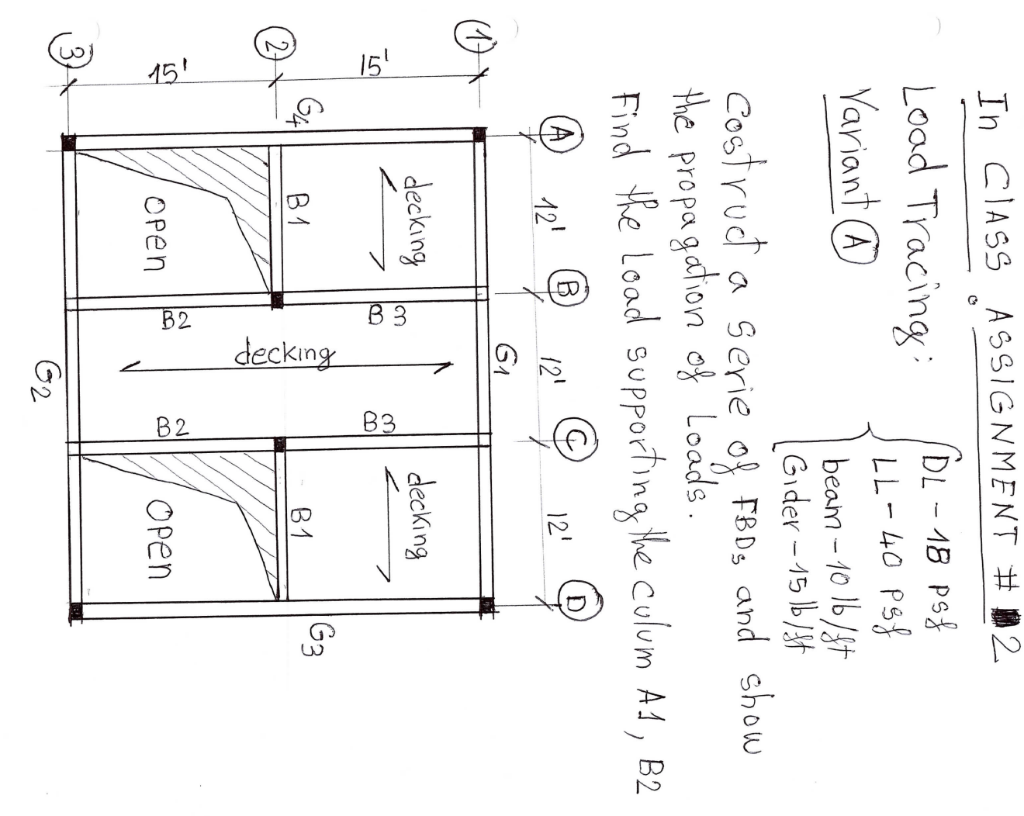 In CLASS. ASSIGNMENT # 2
Load Tracing:
Variant A
DL - 18 psf
LL - 40 psf
beam - 10 lb/ft
Gider - 15 lb/ft
Costruct a serie of FBDs and show
the propagation of Loads.
Find the Load supporting the culum A1, B2
A B C D
12' 12' 12'
G1
1
decking decking
15'
B3 B3
decking
G4 G3
B1 B1
2
B2 B2
open open
15'
3
G2